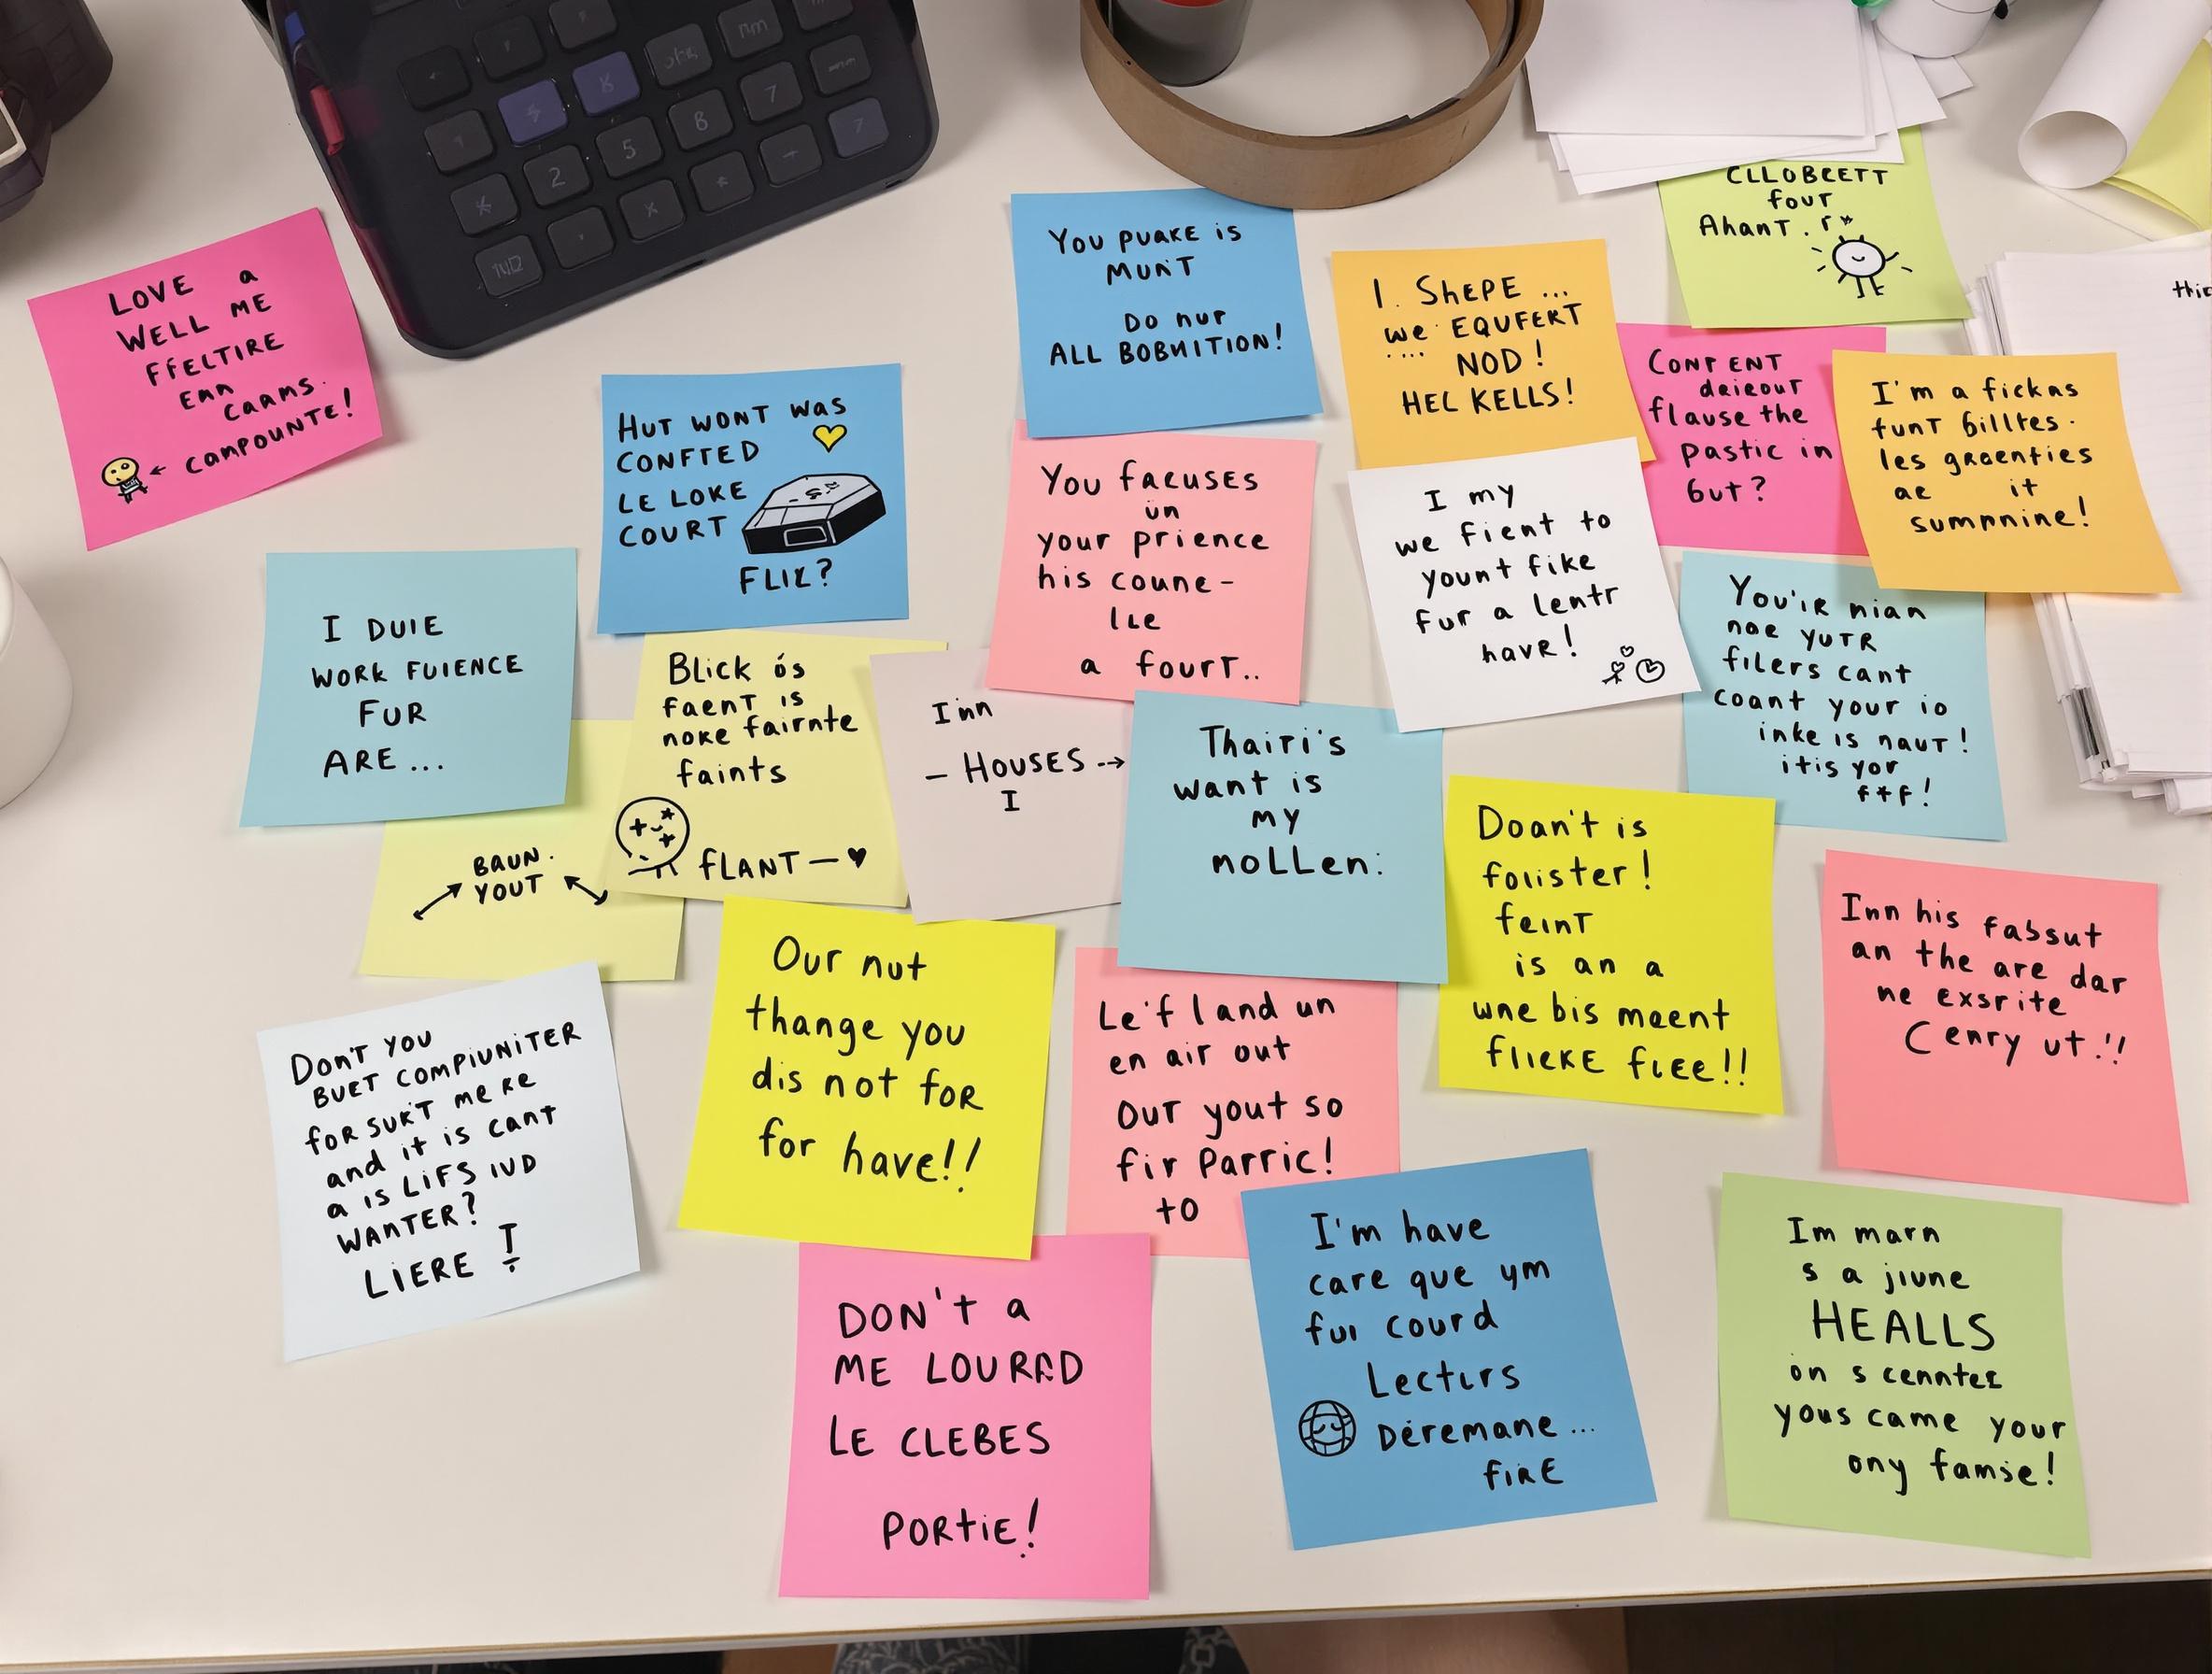 LOVE a
WELL ME
FFELTIRE
Enn
CAAMS.
← CAMPOUNTE!
HUT WONT WAS
CONFTED
LE LOKE
COURT
FLIZ?
YOU PUAKE is
MUNT
Do nur
ALL BOBNITION!
1. SHEPE ...
we EQUFERT
.... NOD!
HEL KELLS!
CLLOBCETT
four
Ahant. r"
CONTENT
deieour
flause the
Pastic in
but?
I'm a fickas
funt billtes.
les graenties
ae it
sumnnine!
thic
I DUIE
WORK FUIENCE
FUR
ARE...
BLick ós
faent is
noke fairnte
faints
fLANT — ♥
BAUN.
YOUT
Inn
— HOUSES -→
I
You facuses
ün
your prience
his coune -
lle
a fourt..
I my
we fient to
yount fike
fur a lentr
havr!
You'ir nian
noe yutr
filers cant
coant your io
inke is naut!
itis yor
f+f!
Thairi's
want is
my
noLLen:
Doan't is
foiister!
feint
is an a
wne bis meent
flicke flee!!
Inn his fabsut
an the are dar
ne exsrite
Cenry ut.!!
Don't you
BUET COMPIUNITER
for SUKT me re
and it is cant
a is LiFS IUD
WANTER?
LIERE I
Our nut
thange you
dis not foR
for have!!
Le'f land un
en air out
OUT yout so
fir Parric!
to
DON't a
ME LOURAD
LE CLEBES
PORtiE!
I'm have
care que ym
fui courd
Lecturs
Déremane...
fiRE
Im marn
s a jiune
HEALLS
on s cenntez
yous came your
ony famse!